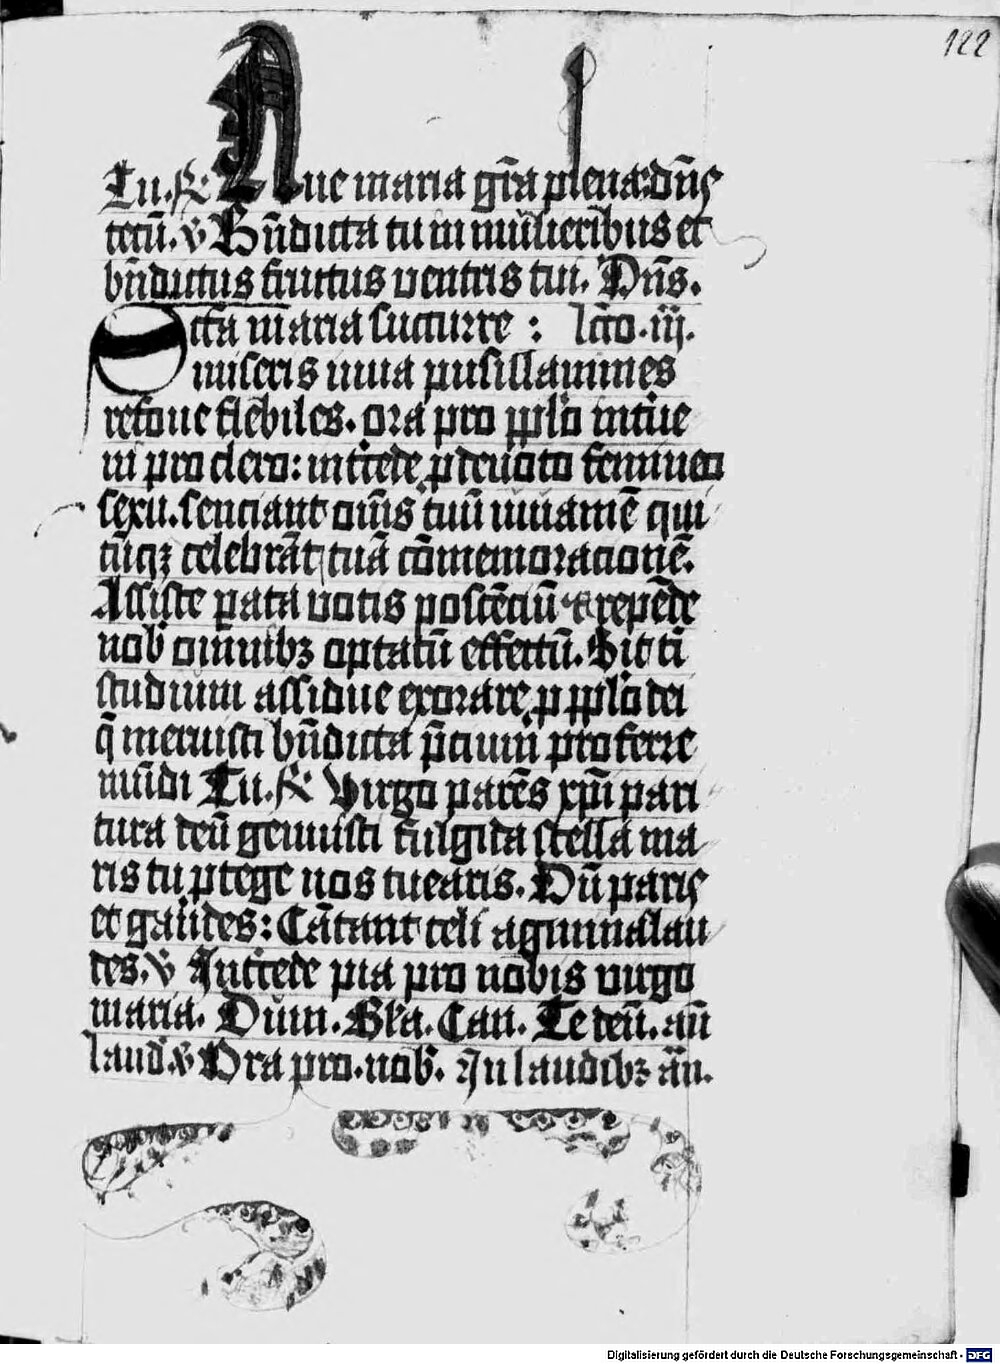 122
Tu. R Aue maria grã plena: dñs
tecũ. v Bñdicta tu in mulieribus et
bñdictus fructus ventris tui. Dñs.
Scta maria succurre : lcĩo. iij.
miseris iuua pusillanimes
refoue flebiles. ora pro pplo intue
ni pro clero: intcede p deuoto femineo
sexu. senciant om̃s tuũ iuuamẽ qui
cũqꝫ celebrãt tuã cõmemoracionẽ.
Assiste parata votis poscẽciũ & repẽde
nob omnibꝫ optatũ effectũ. Sit ti
studium assidue exorare p pplo dei
q̃ meruisti bñdicta p̃cium proferre
mũdi Tu. R Virgo parẽs xp̃i pari
tura deũ genuisti fulgida stella ma
ris tu ptege nos tuearis. Dũ paris
et gaudes: Cãtant celi agmina lau
des. v Intcede pia pro nobis virgo
maria. Dum. Gla. Can. Te deũ. añ
laud. v Ora pro. nob. In laudibꝫ añ.
Digitalisierung gefördert durch die Deutsche Forschungsgemeinschaft - DFG